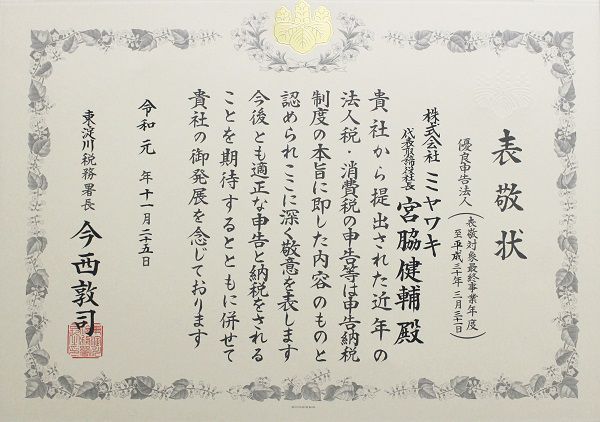 表敬状
優良申告法人（表敬対象最終事業年度
至平成三十年三月三十一日）
株式会社ミヤワキ
代表取締役社長 宮脇健輔殿
貴社から提出された近年の
法人税・消費税の申告等は申告納税
制度の本旨に即した内容のものと
認められここに深く敬意を表します
今後とも適正な申告と納税をされる
ことを期待するとともに併せて
貴社の御発展を念じております
令和元年十一月二十五日
東淀川税務署長 今西敦司